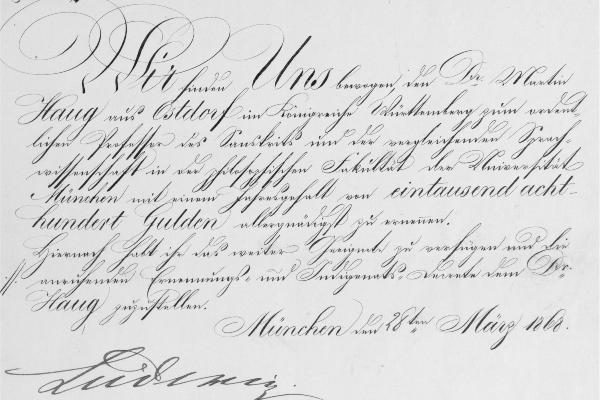 Wir finden Uns bewogen den Dr. Martin
Haug aus Ostdorf im Königreiche Württemberg zum ordent-
lichen Professor des Sanskrits und der vergleichenden Sprach-
wissenschaft in der philosophischen Fakultät der Universität
München mit einem Jahresgehalt von eintausend acht-
hundert Gulden allergnädigst zu ernennen.
Hiernach habt ihr das weiter Geeignete zu verfügen und die
anruhenden Ernennungs- und Indigenats-Decrete dem Dr.
Haug zuzustellen.
München den 28ten März 1868.
Ludwig